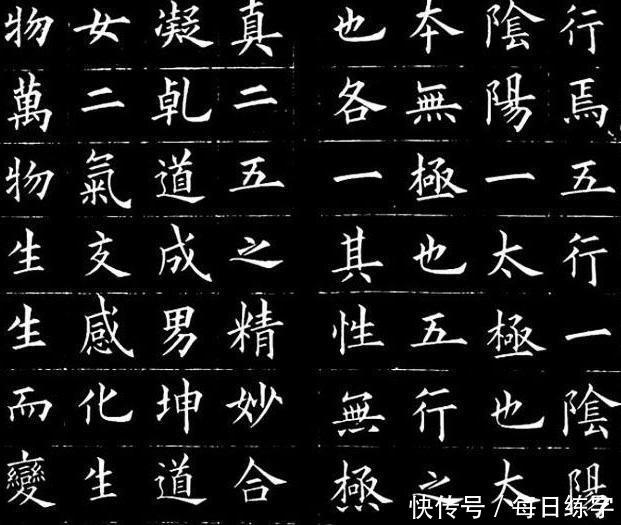 行焉五行一陰陽
陰陽一太極也太
本無極也五行之
也各一其性無極
真二五之精妙合
凝乾道成男坤道
女二氣交感化生
物萬物生生而變
快传号 / 每日练字